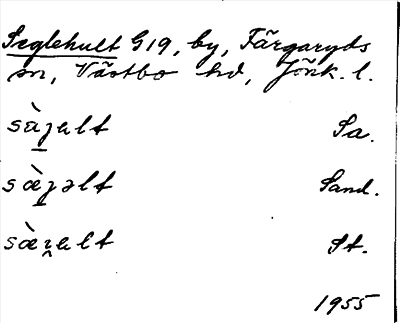 Seglehult G19, by, Färgaryds
sn, Västbo hd, Jönk. l.
sàȷult Sa.
sæ̀ȷəlt Sand.
sæ̀ult St.
1955